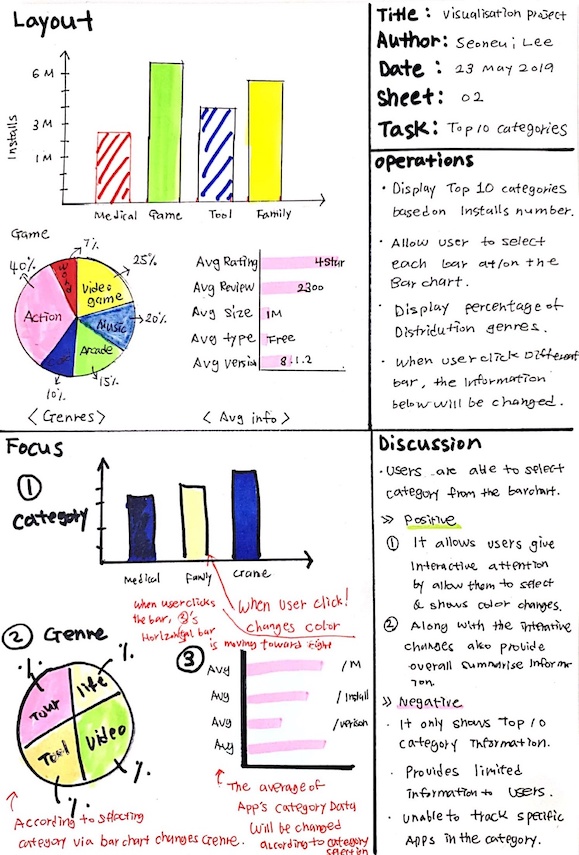 Layout
6 M
3 M
1 M
Installs
Medical Game Tool Family
Game
7%
40%
25%
20%
15%
10%
Word
Video
game
Action
Music
Arcade
< Genres >
Avg Rating 4 Star
Avg Review 2300
Avg Size 1M
Avg type Free
Avg version 8.1.2
< Avg info >
Title: Visualisation project
Author: Seoneui Lee
Date: 23 May 2019
Sheet: 02
Task: Top 10 categories
operations
· Display Top 10 categories
based on Installs number.
· Allow user to select
each bar at/on the
Bar chart.
· Display percentage of
Distridution genres.
· when user click Different
bar, the Information
below will be changed.
Focus
1
category
Medical Family Crame
when user clicks
the bar, 3's
Horizongal bar
is moving toward right
when user click!
changes color
2 Genre
%
%
%
%
Tour
life
Tool
Video
According to sflecting
category via bar chart changes Genre.
3
Avg / M
Avg / Install
Avg / verison
Avg
The average of
App's Category Data
will be changed
according to category
selection
Discussion
· Users are able to select
category from the barchart.
>> Positive
1 It allows users give
Interactive attention
by allow them to select
& shows color changes.
2 Along with the interative
changes also provide
overall summarise Informa-
tion.
>> Negative
· It only shows Top 10
category Information.
· Provides limited
Information to users.
· unable to track specific
Apps in the category.